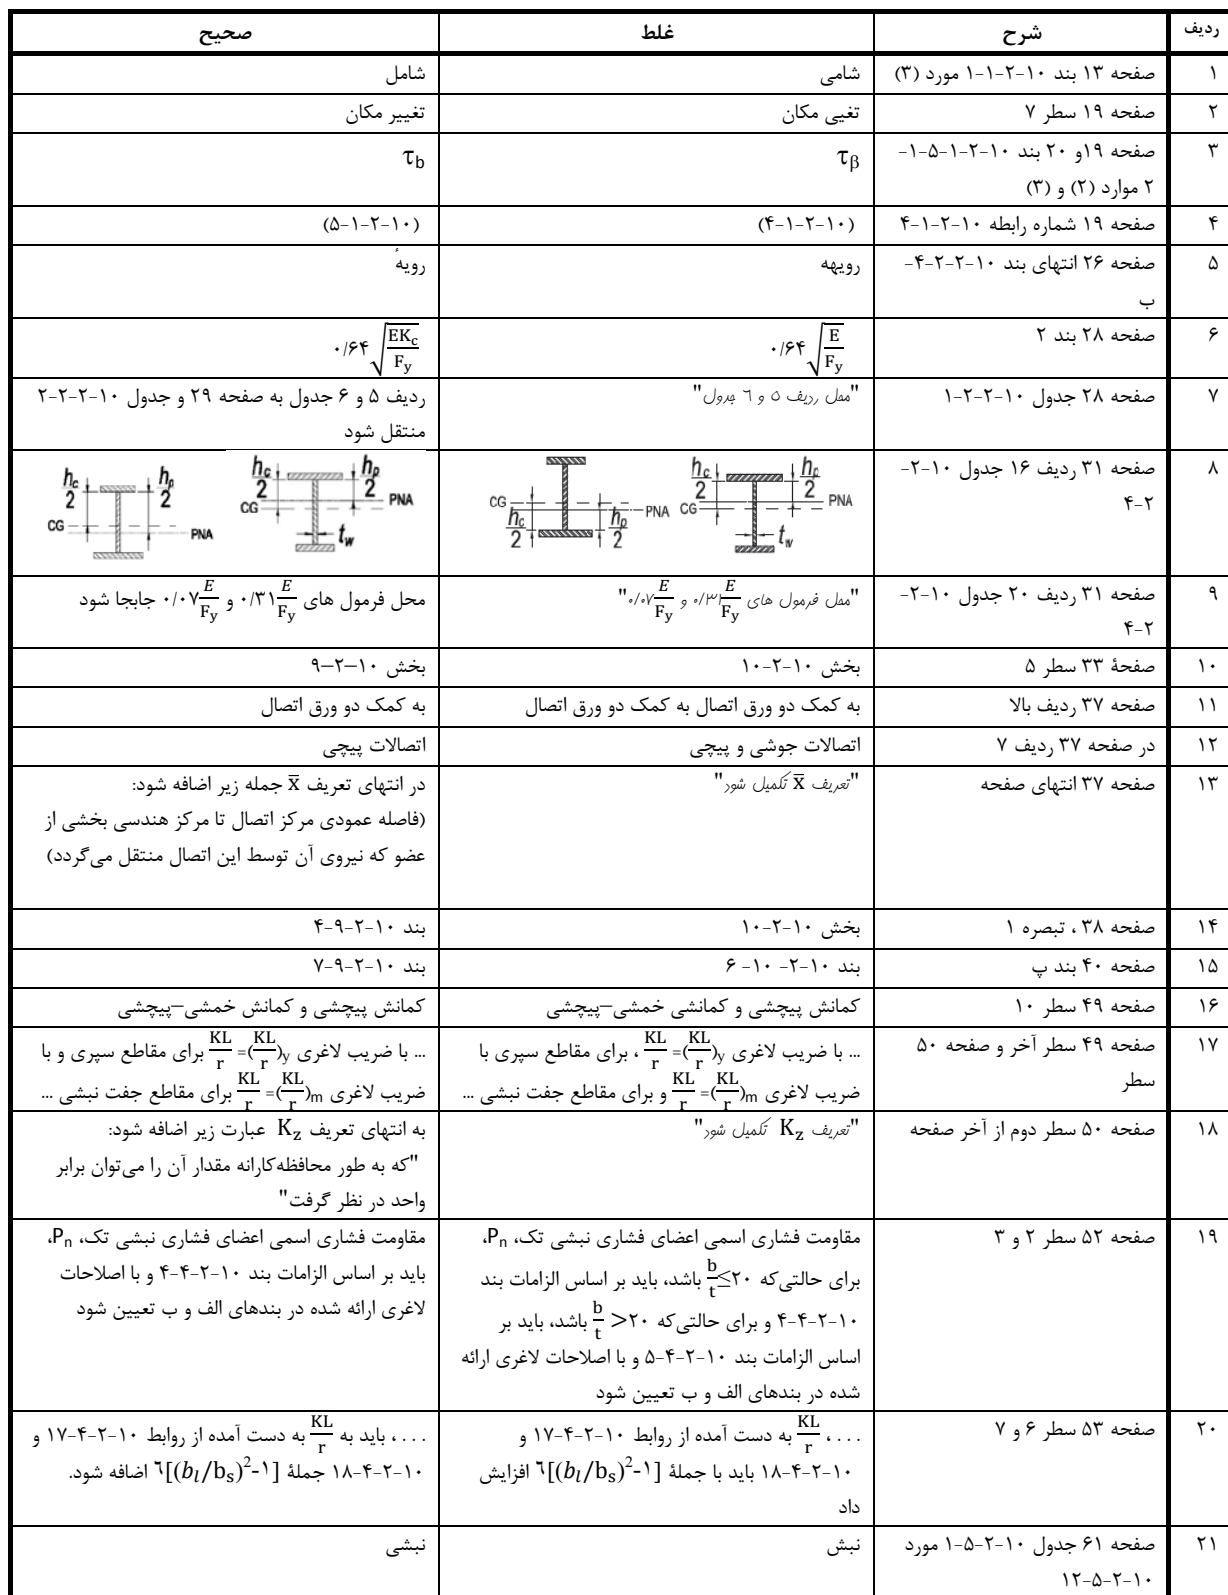 ردیف شرح غلط صحیح
۱ صفحه ۱۳ بند ۱۰-۲-۱-۱ مورد (۳) شامی شامل
۲ صفحه ۱۹ سطر ۷ تغیی مکان تغییر مکان
۳ صفحه ۱۹و ۲۰ بند ۱۰-۲-۱-۵-۱- τβ τb
۲ موارد (۲) و (۳)
۴ صفحه ۱۹ شماره رابطه ۱۰-۲-۱-۴ (۱۰-۲-۱-۴) (۱۰-۲-۱-۵)
۵ صفحه ۲۶ انتهای بند ۱۰-۲-۲-۴- رویهه رویهٔ
ب
۶ صفحه ۲۸ بند ۲ ۰/۶۴ √(E/Fy) ۰/۶۴ √(EKc/Fy)
۷ صفحه ۲۸ جدول ۱۰-۲-۲-۱ "محل ردیف ۵ و ۶ جدول" ردیف ۵ و ۶ جدول به صفحه ۲۹ و جدول ۱۰-۲-۲-۲
منتقل شود
۸ صفحه ۳۱ ردیف ۱۶ جدول ۱۰-۲-
۲-۴
hc/2 hp/2 CG PNA tw
CG PNA hc/2 hp/2
hc/2 hp/2 CG PNA tw
hc/2 hp/2 CG PNA
۹ صفحه ۳۱ ردیف ۲۰ جدول ۱۰-۲- "محل فرمول های ۰/۳۱ E/Fy و ۰/۰۷ E/Fy" محل فرمول های ۰/۳۱ E/Fy و ۰/۰۷ E/Fy جابجا شود
۲-۴
۱۰ صفحهٔ ۳۳ سطر ۵ بخش ۱۰-۲-۱۰ بخش ۱۰–۲–۹
۱۱ صفحه ۳۷ ردیف بالا به کمک دو ورق اتصال به کمک دو ورق اتصال به کمک دو ورق اتصال
۱۲ در صفحه ۳۷ ردیف ۷ اتصالات جوشی و پیچی اتصالات پیچی
۱۳ صفحه ۳۷ انتهای صفحه "تعریف x̅ تکمیل شود" در انتهای تعریف x̅ جمله زیر اضافه شود:
(فاصله عمودی مرکز اتصال تا مرکز هندسی بخشی از
عضو که نیروی آن توسط این اتصال منتقل می‌گردد)
۱۴ صفحه ۳۸ ، تبصره ۱ بخش ۱۰-۲-۱۰ بند ۱۰-۲-۹-۴
۱۵ صفحه ۴۰ بند پ بند ۱۰-۲- ۱۰- ۶ بند ۱۰-۲-۹-۷
۱۶ صفحه ۴۹ سطر ۱۰ کمانش پیچشی و کمانشی خمشی–پیچشی کمانش پیچشی و کمانش خمشی–پیچشی
۱۷ صفحه ۴۹ سطر آخر و صفحه ۵۰ ... با ضریب لاغری KL/r =(KL/r)y ، برای مقاطع سپری با ... با ضریب لاغری KL/r =(KL/r)y برای مقاطع سپری و با
سطر ضریب لاغری KL/r =(KL/r)m و برای مقاطع جفت نبشی ... ضریب لاغری KL/r =(KL/r)m برای مقاطع جفت نبشی ...
۱۸ صفحه ۵۰ سطر دوم از آخر صفحه "تعریف Kz تکمیل شود" به انتهای تعریف Kz عبارت زیر اضافه شود:
"که به طور محافظه‌کارانه مقدار آن را می‌توان برابر
واحد در نظر گرفت"
۱۹ صفحه ۵۲ سطر ۲ و ۳ مقاومت فشاری اسمی اعضای فشاری نبشی تک، Pn، مقاومت فشاری اسمی اعضای فشاری نبشی تک، Pn،
برای حالتی‌که b/t ≤۲۰ باشد، باید بر اساس الزامات بند باید بر اساس الزامات بند ۱۰-۲-۴-۴ و با اصلاحات
۱۰-۲-۴-۴ و برای حالتی‌که b/t >۲۰ باشد، باید بر لاغری ارائه شده در بندهای الف و ب تعیین شود
اساس الزامات بند ۱۰-۲-۴-۵ و با اصلاحات لاغری ارائه
شده در بندهای الف و ب تعیین شود
۲۰ صفحه ۵۳ سطر ۶ و ۷ . . . ، KL/r به دست آمده از روابط ۱۰-۲-۴-۱۷ و . . . ، باید به KL/r به دست آمده از روابط ۱۰-۲-۴-۱۷ و
۱۰-۲-۴-۱۸ باید با جملهٔ ۶[(bl/bs)²-۱] افزایش ۱۰-۲-۴-۱۸ جملهٔ ۶[(bl/bs)²-۱] اضافه شود.
داد
۲۱ صفحه ۶۱ جدول ۱۰-۲-۵-۱ مورد نبش نبشی
۱۰-۲-۵-۱۲